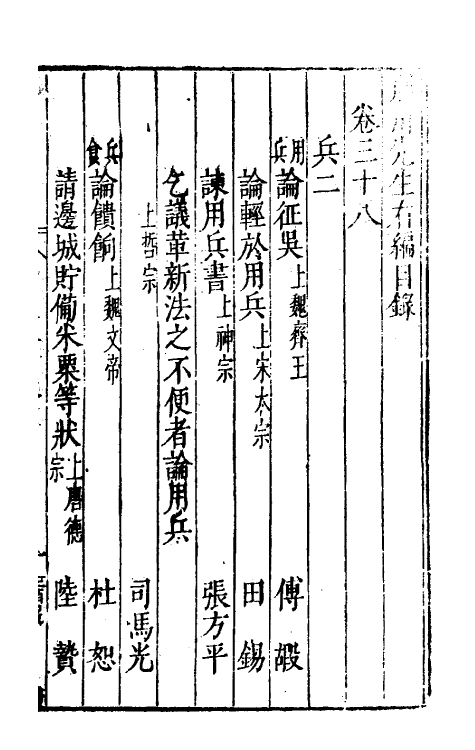 荊川先生右編目錄
卷三十八
兵二
用兵 論征吳 上魏齊王 傅嘏
論輕於用兵 上宋太宗 田錫
諫用兵書 上神宗 張方平
乞議革新法之不便者論用兵
上哲宗 司馬光
兵食 論饋餉 上魏文帝 杜恕
請邊城貯備米粟等狀 上唐德宗 陸贄